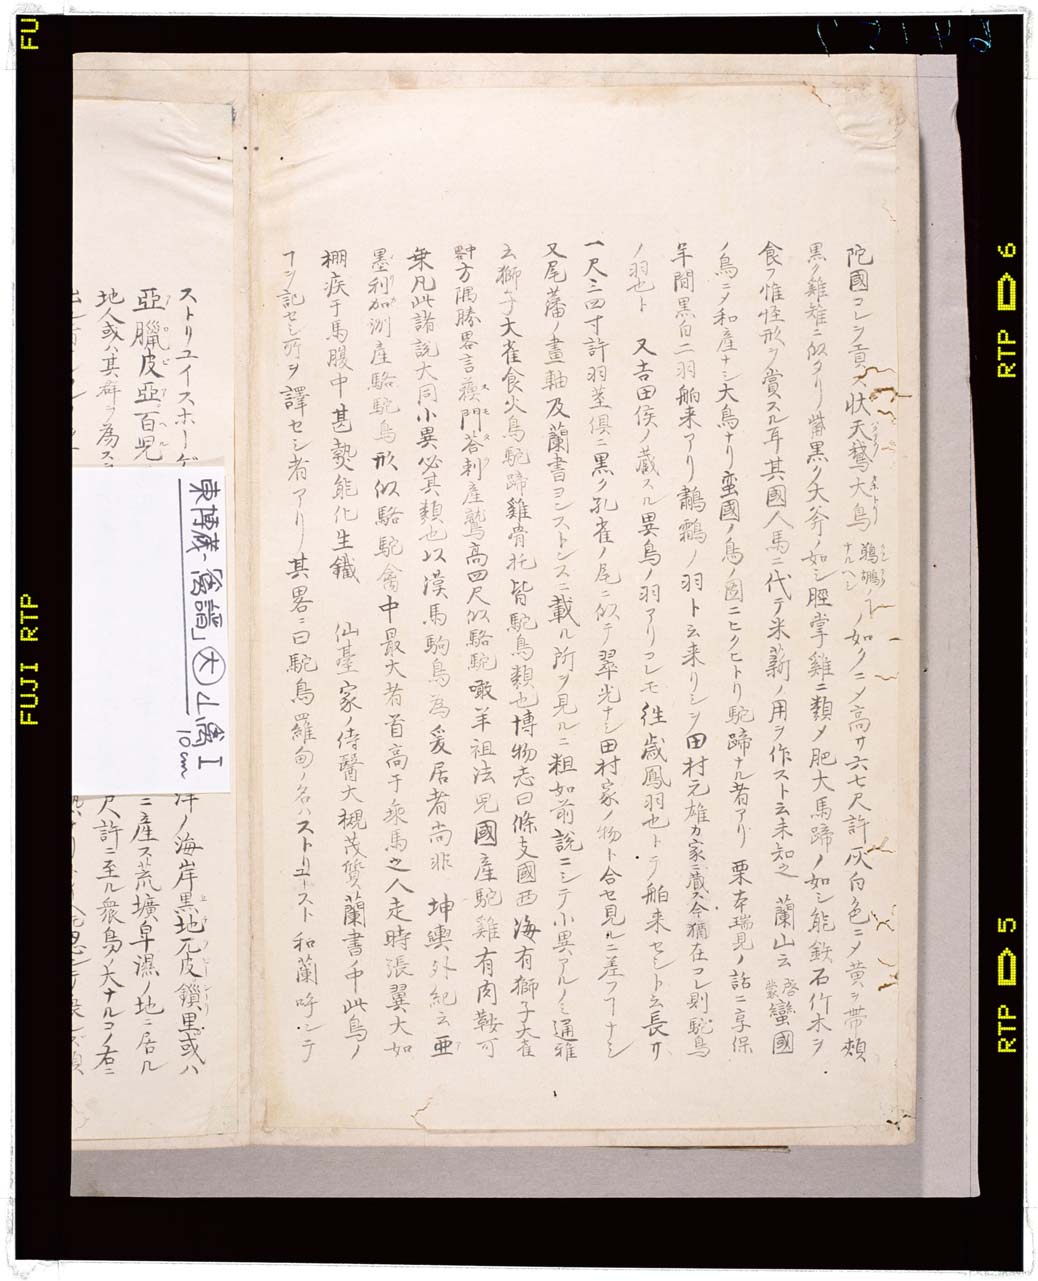 陀國コレヲ貢ス状天鵞大鳥ノ如クニメ高サ六七尺許灰白ノ色ニメ黄ヲ帯頰
黒ク雞雉ニ似タリ觜黒ク大斧ノ如シ脛掌雞ニ類メ肥大馬蹄ノ如シ能鉄石竹木ヲ
食フ惟怪形ヲ賞スル耳其國人馬ニ代テ米薪ノ用ヲ作スト云未知之 蘭山云 啓蒙 蠻國
ノ鳥ニメ和産ナシ大鳥ナリ蛮國ノ鳥ノ圖ニヒクヒトリ駝蹄ナル者アリ 栗本瑞見ノ話ニ享保
年間黒白二羽舶来アリ鷫鸘ノ羽ト云来リシヲ田村元雄カ家ニ蔵ス今猶在コレ則駝鳥
ノ羽也ト 又吉田侯ノ蔵スル異鳥ノ羽アリコレモ往歳鳳羽也トテ舶来セシト云長サ
一尺三四寸許羽茎俱ニ黒ク孔雀ノ尾ニ似テ翠光ナシ田村家ノ物ト合セ見ルニ差フヿナシ
又尾藩ノ畫軸及蘭書ヨンストンスニ載ル所ヲ見ルニ粗如前説ニシテ小異アルノミ通雅
云獅子大雀食火鳥駝蹄雞骨托皆駝鳥類也博物志曰條支國西海有獅子大雀
方隅勝畧言 門荅剌産鷲高四尺似駱駝噉羊祖法児國産駝雞有肉鞍可
乗凡此諸説大同小異必其類也以漢馬駒鳥為爰居者尚非 坤輿外紀云亜
墨利加洲産駱駝鳥形似駱駝禽中最大者首高于乗馬之人走時張翼大如
棚疾于馬腹中甚熱能化生鐵 仙臺家ノ侍醫大槻茂質蘭書ノ中此鳥ノ
ヿヲ記セシ所ヲ譯セシ者アリ其畧ニ曰駝鳥羅甸ノ名ハストリュトスト 和蘭呼シテ
ストリユイスホーゲ 洋ノ海岸黒地兀皮鎖里或ハ
亞臘皮亞百児 ニ産ス荒壙卑濕ノ地ニ居ル
地人或ハ其群ヲ為ス 尺許ニ至ル衆鳥ノ大ナルコノ右ニ
東博蔵「禽譜」大 山禽 I
10cm
FU
FUJI RTP
RTP 6
RTP 5